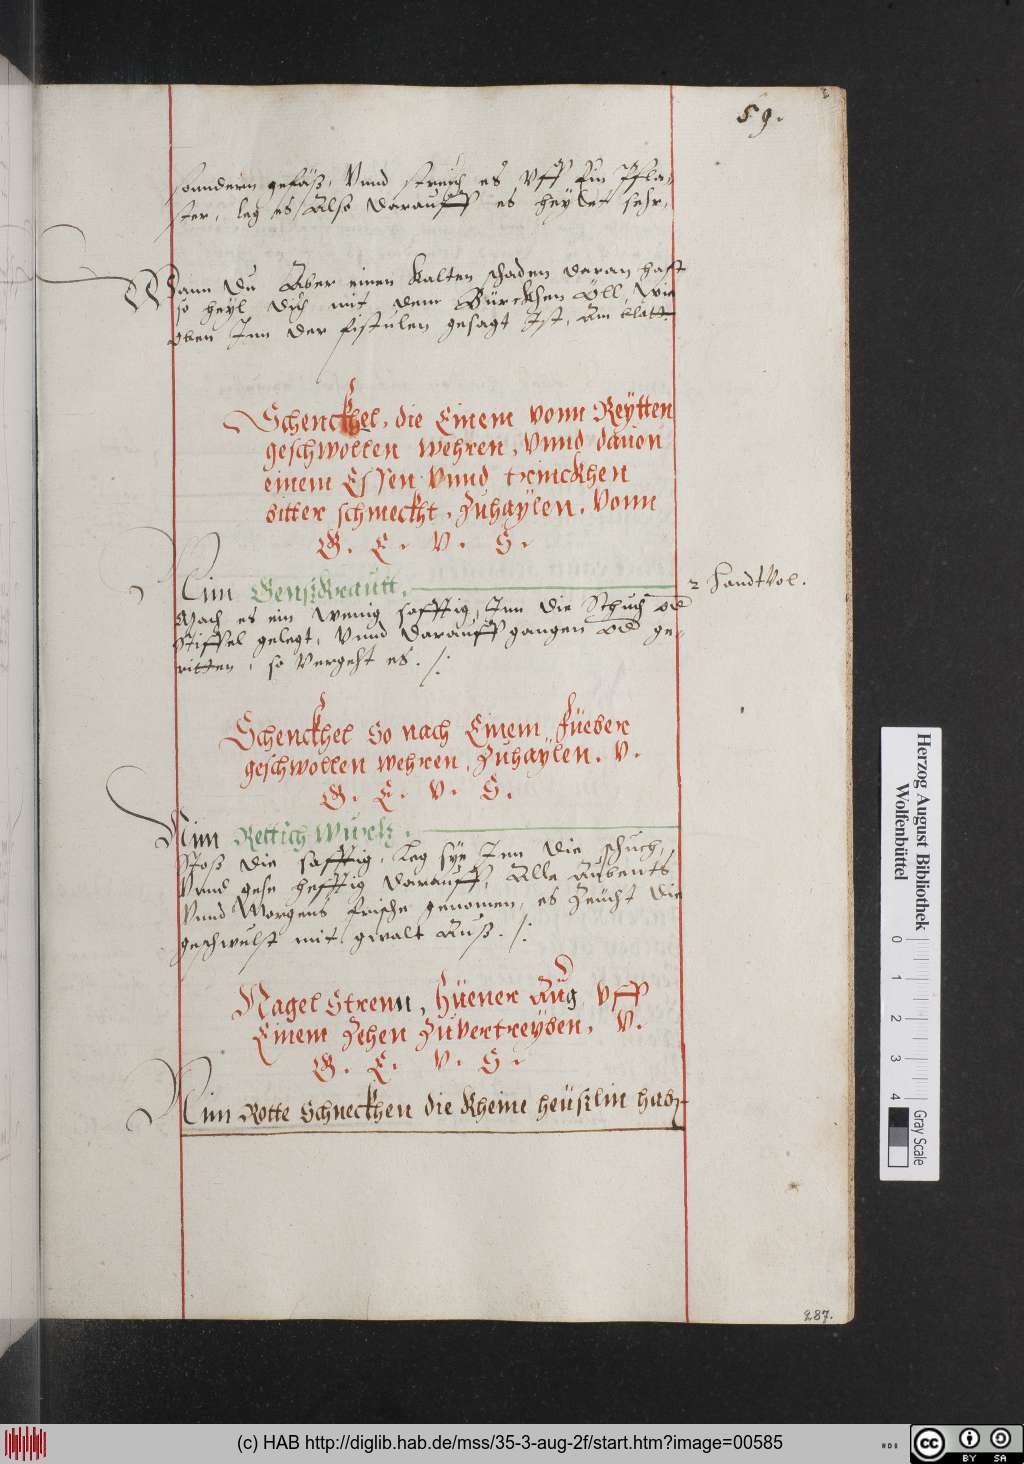 59.
sonndern gefäß, Vnnd streich es Vff Ein Pfla-
ster, leg es Also darauff es heylet sehr,
Wann du Aber einen kalten schaden daran hast
so heyl dich mit dem Bürckhen Öll, wie
oben Inn der fistulen gesagt Ist, Am blatt.
Schenckhel, die Einem vonn Reÿtten
geschwollen wehren, Vnnd dauon
einem Essen Vnnd trinckhen
bitter schmeckht, Zuhaÿlen, Vonn
G. E. V. S.
Nim Genßkrautt,
2 Handtvol.
Mach es ein wenig safftig, Inn die Schuch od
Stiffel gelegt, Vnnd darauff gangen od ge-
ritten, so Vergeht es. /:
Schenckhel So nach Einem Füeber
geschwollen wehren, Zuhaÿlen. V.
G. E. V. S.
Nim Rettich Wurtz,
Stoß die safftig, Leg sÿe Inn die schuch,
Vnnd gehe hefftig darauff, Alle Aubents
Vnnd Morgens frische genomen, es Zeücht die
geschwulst mit gwalt Auß. /:
Nagel Strenn, Hüener Aug Vff
Einem Zehen Zuvertreÿben, V.
G. E. V. S.
Nim Rotte Schneckhen die kheine heüßlin hab
287.
Herzog August Bibliothek
Wolfenbüttel
0 1 2 3 4
Gray Scale
(c) HAB http://diglib.hab.de/mss/35-3-aug-2f/start.htm?image=00585
cc BY SA